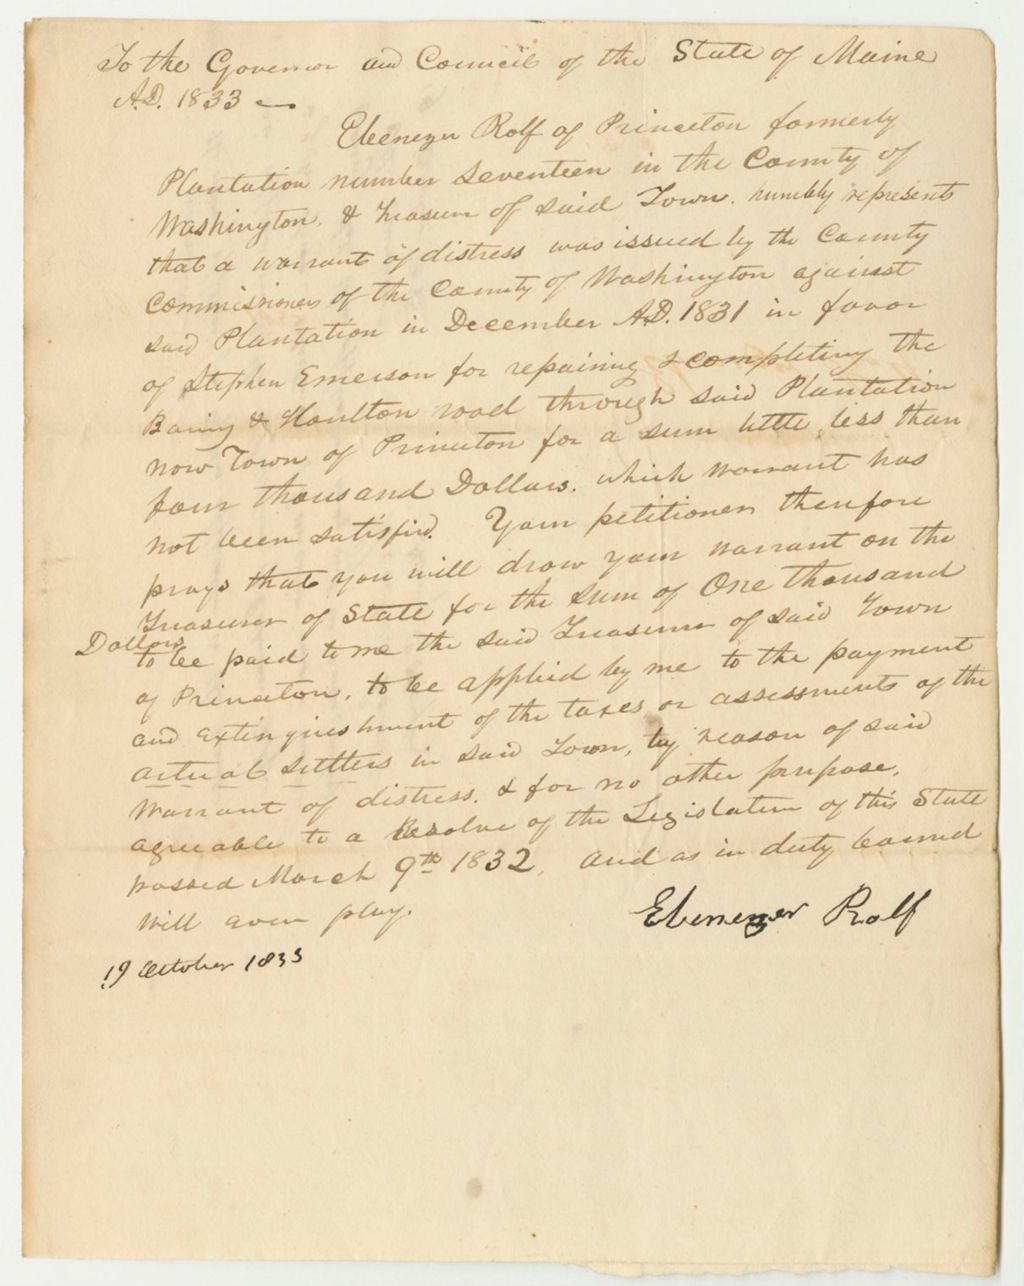 To the Governor and Council of the State of Maine
A.D. 1833 —
Ebenezer Rolf of Princeton formerly
Plantation number Seventeen in the County of
Washington, & Treasurer of said Town, humbly represents
that a warrant of distress was issued by the County
Commissioners of the County of Washington against
said Plantation in December A.D. 1831 in favor
of Stephen Emerson for repairing & completing the
Baring & Houlton road through said Plantation
now Town of Princeton for a sum little less than
four thousand Dollars, which warrant has
not been satisfied. Your petitioner therefore
prays that you will draw your warrant on the
Treasurer of State for the sum of One thousand
Dollars
to be paid to me the said Treasurer of said Town
of Princeton, to be applied by me to the payment
and extinguishment of the taxes or assessments of the
actual settlers in said Town, by reason of said
Warrant of distress, & for no other purpose,
agreeable to a Resolve of the Legislature of this State
passed March 9th 1832, and as in duty bound
will ever pray.
Ebenezer Rolf
19 October 1833